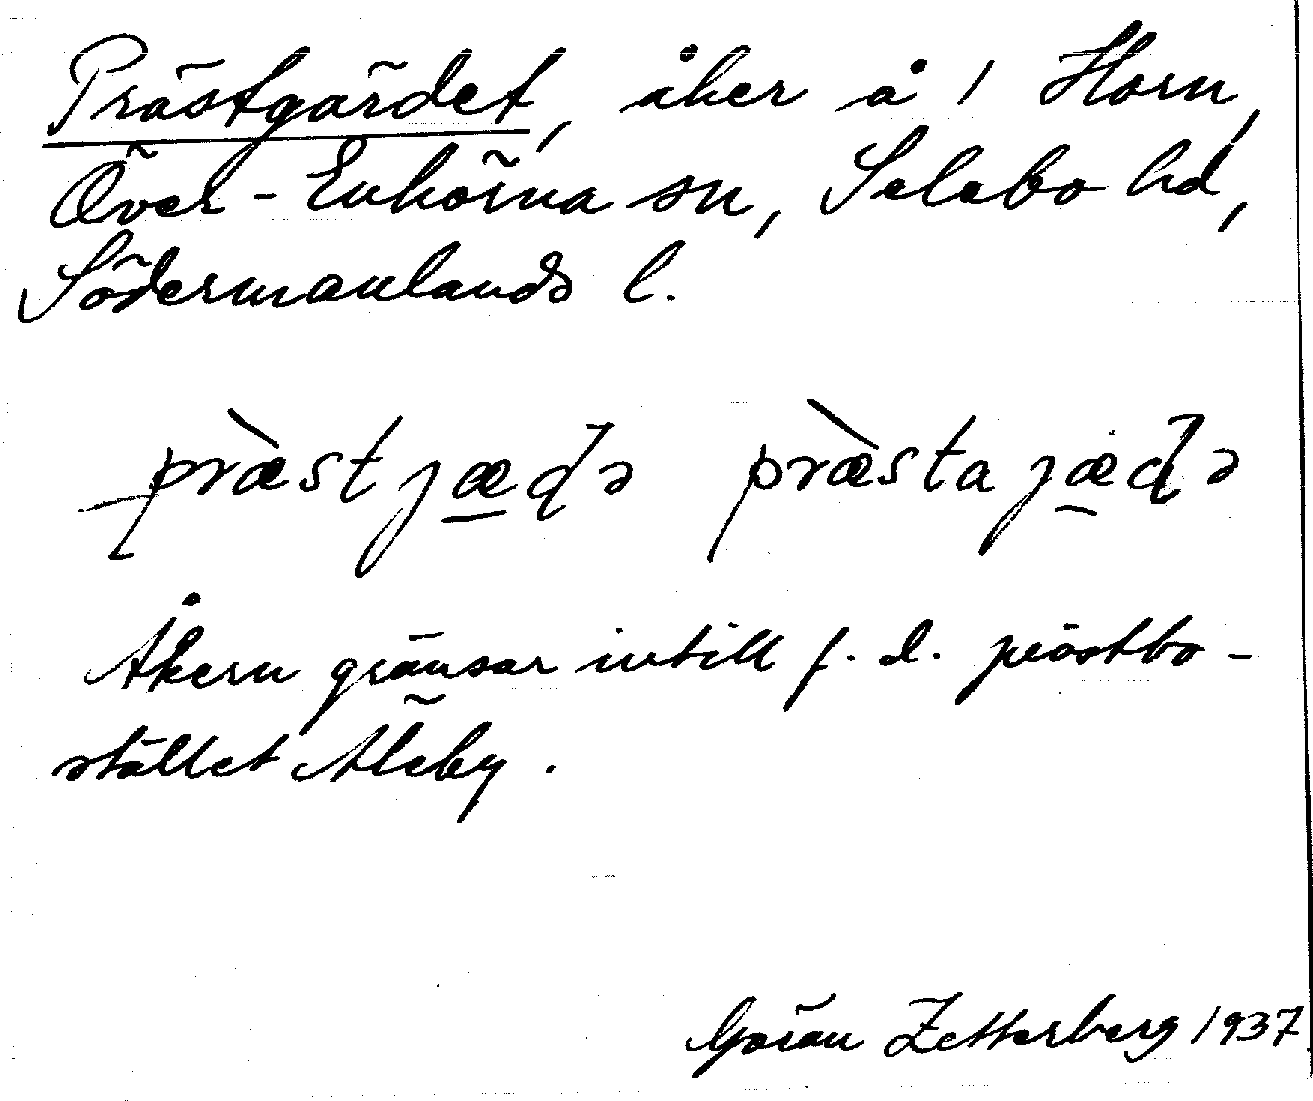 Prästgärdet, åker å 1 Horn,
Över-Enhörna sn, Selebo hd,
Södermanlands l.
præ̀stjæ̠ɖə præ̀stajæ̠ɖə
Åkern gränsar intill f. d. prästbo-
stället Åleby.
Göran Zetterberg 1937